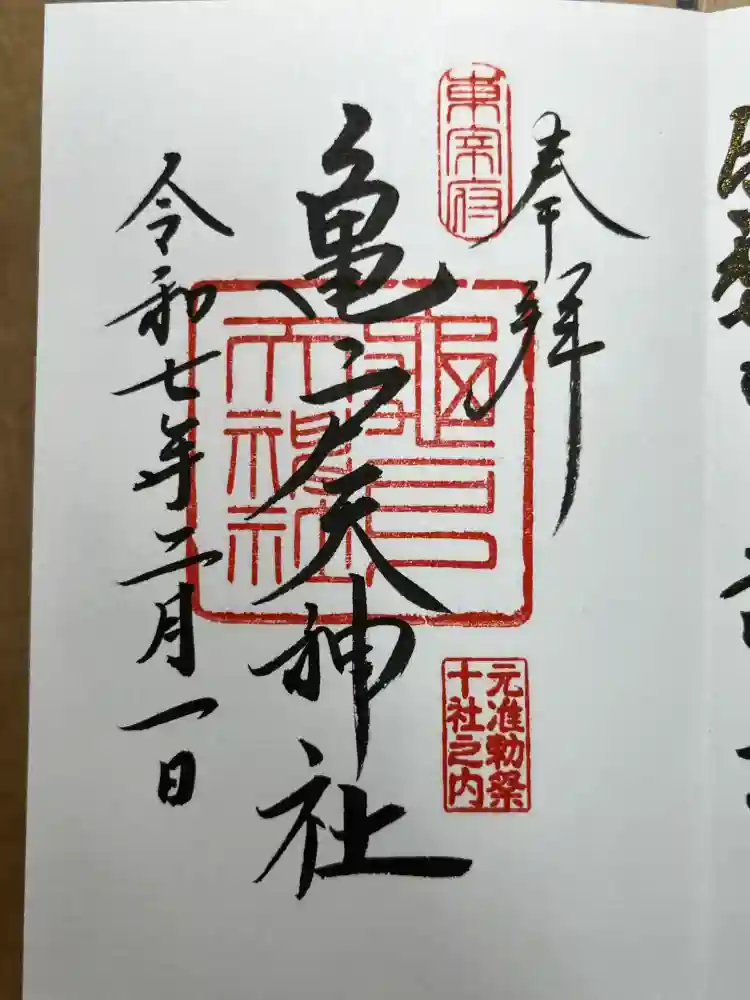 奉拝
東宰府
亀戸天神社
亀戸
天神社
元准勅祭
十社之内
令和七年二月一日